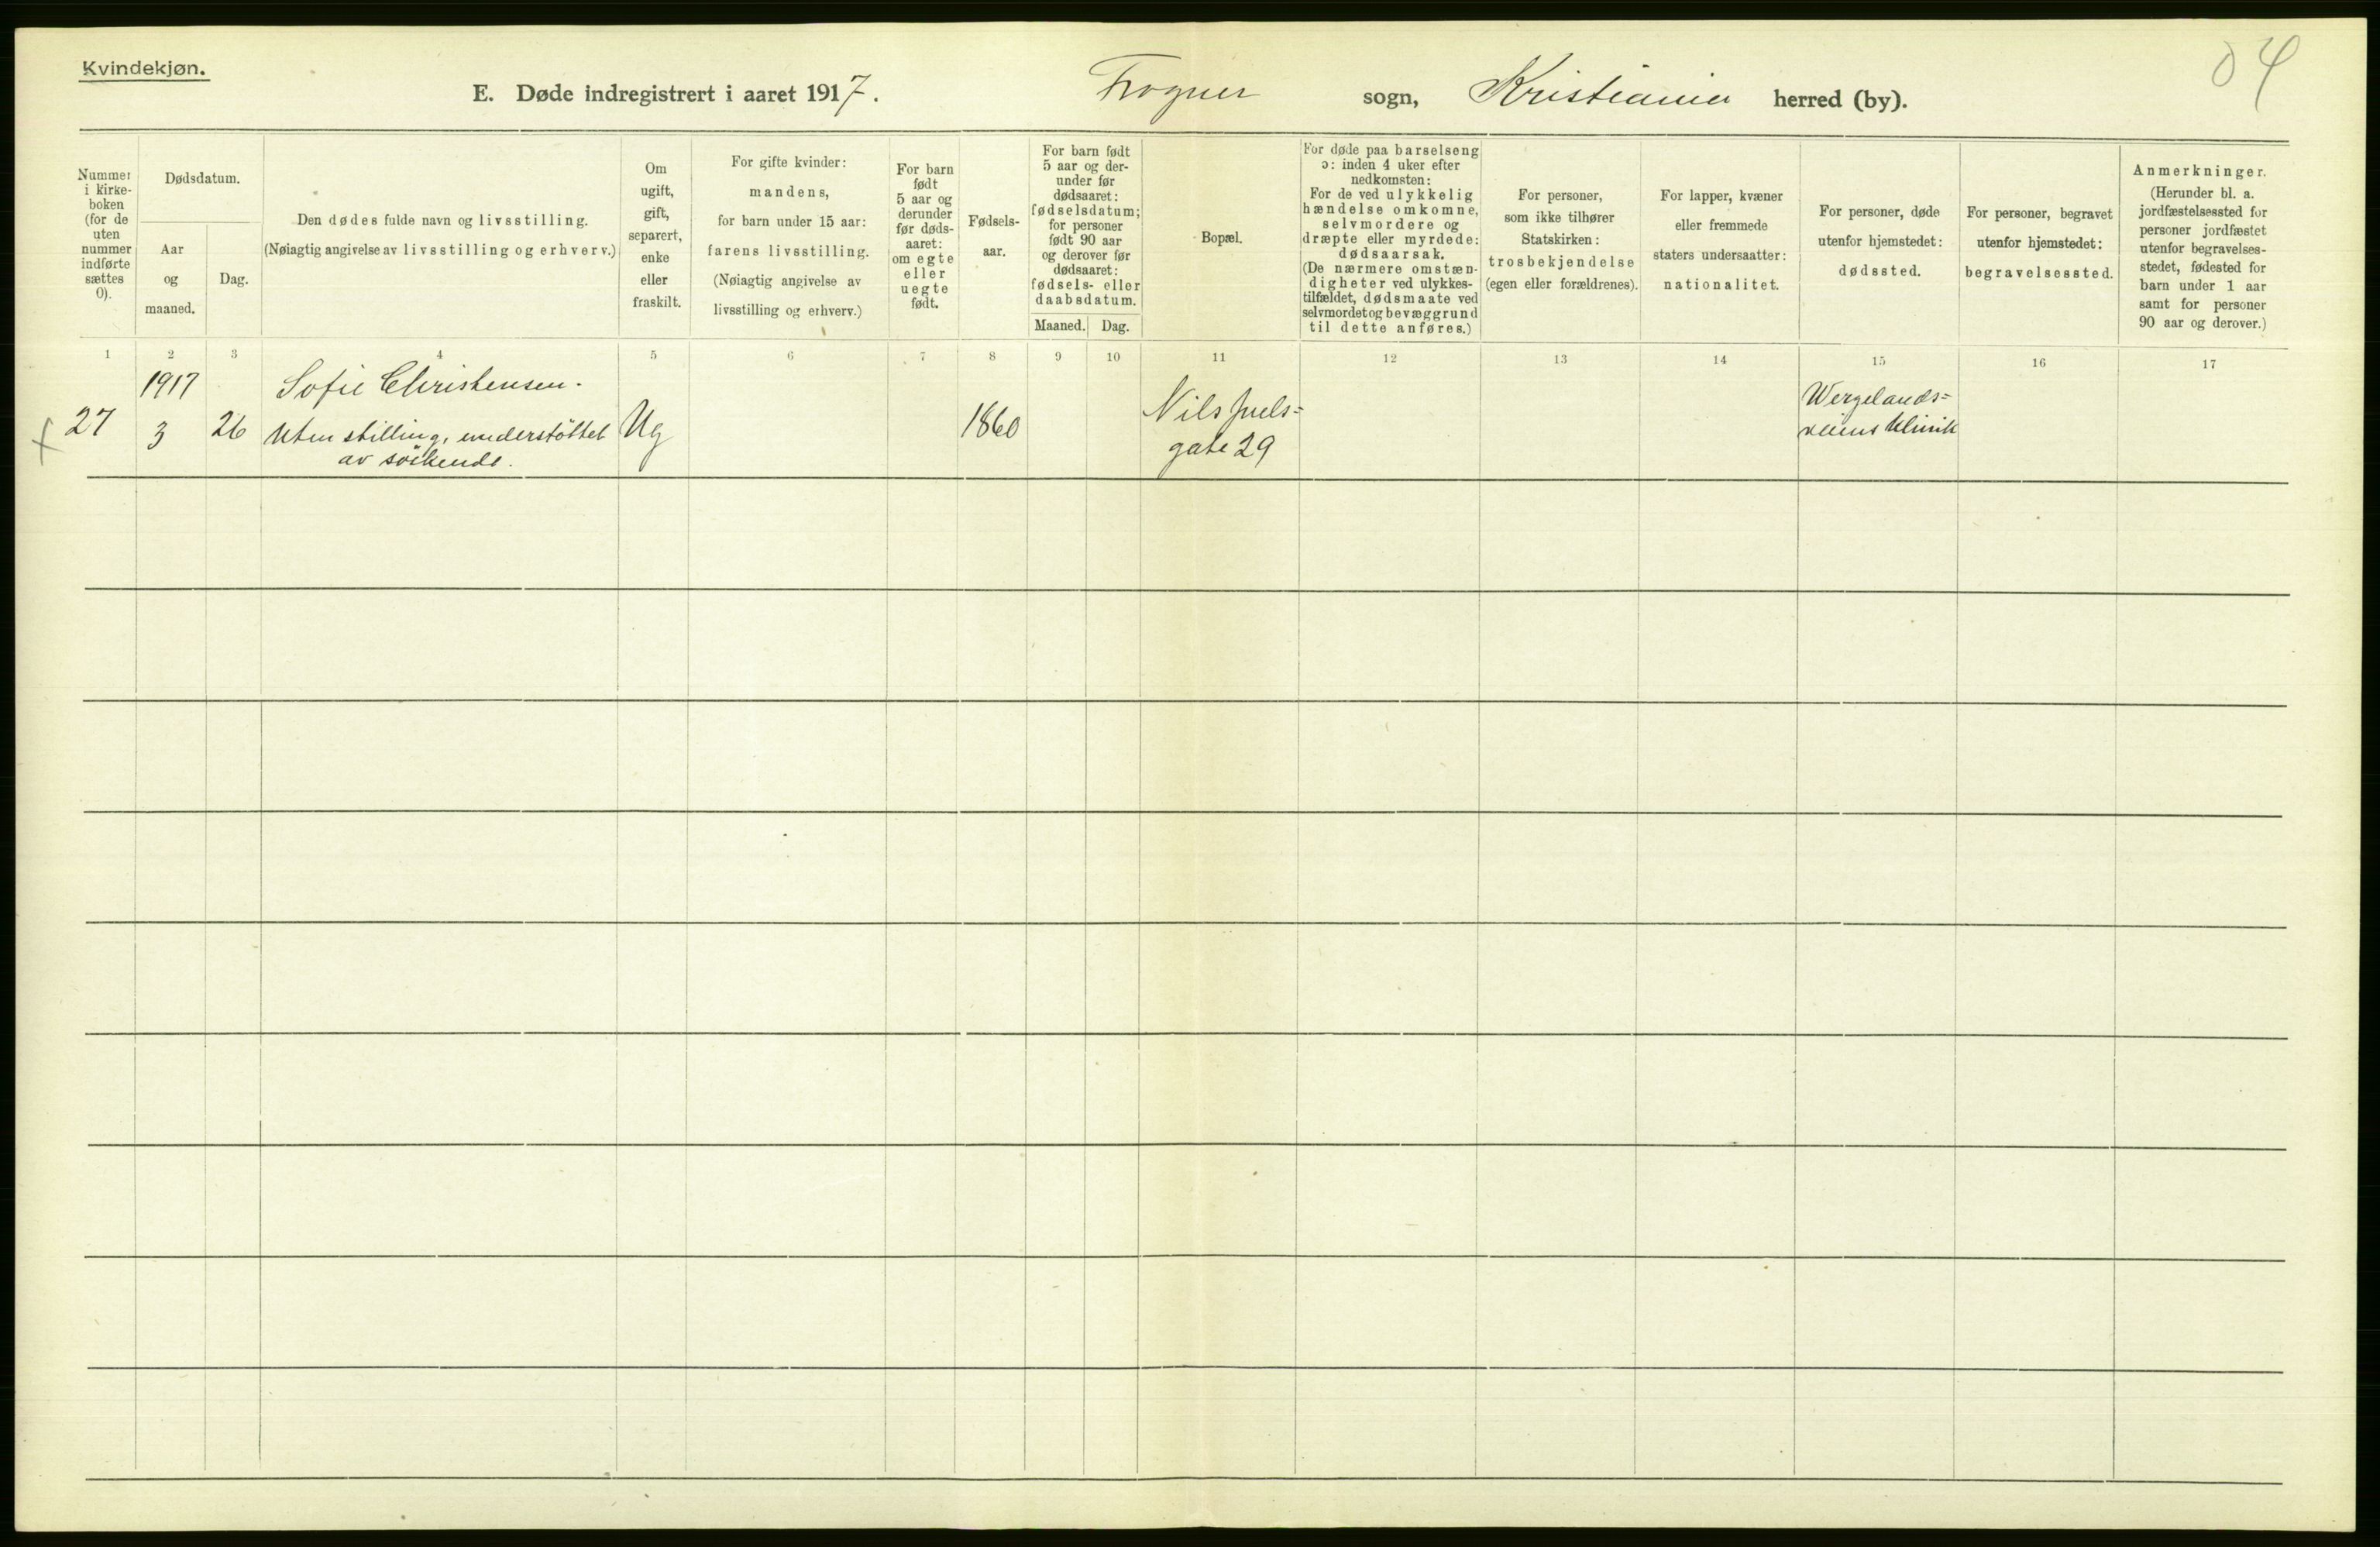 Kvindekjøn.
E. Døde indregistrert i aaret 1917. Frogner sogn, Kristiania herred (by).
04
Nummer
i kirke-
boken
(for de
uten
nummer
indførte
sættes
0).
Dødsdatum.
Aar
og
maaned.
Dag.
Den dødes fulde navn og livsstilling.
(Nøiagtig angivelse av livsstilling og erhverv.)
Om
ugift,
gift,
separert,
enke
eller
fraskilt.
For gifte kvinder:
mandens,
for barn under 15 aar:
farens livsstilling.
(Nøiagtig angivelse av
livsstilling og erhverv.)
For barn
født
5 aar og
derunder
før døds-
aaret:
om egte
eller
uegte
født.
Fødsels-
aar.
For barn født
5 aar og der-
under før
dødsaaret:
fødselsdatum;
for personer
født 90 aar
og derover før
dødsaaret:
fødsels- eller
daabsdatum.
Maaned. Dag.
Bopæl.
For døde paa barselseng
ɔ: inden 4 uker efter
nedkomsten:
For de ved ulykkelig
hændelse omkomne,
selvmordere og
dræpte eller myrdede:
dødsaarsak.
(De nærmere omstæn-
digheter ved ulykkes-
tilfældet, dødsmaate ved
selvmordet og bevæggrund
til dette anføres.)
For personer,
som ikke tilhører
Statskirken:
trosbekjendelse
(egen eller forældrenes).
For lapper, kvæner
eller fremmede
staters undersaatter:
nationalitet.
For personer, døde
utenfor hjemstedet:
dødssted.
For personer, begravet
utenfor hjemstedet:
begravelsessted.
Anmerkninger.
(Herunder bl. a.
jordfæstelsessted for
personer jordfæstet
utenfor begravelses-
stedet, fødested for
barn under 1 aar
samt for personer
90 aar og derover.)
1 2 3 4 5 6 7 8 9 10 11 12 13 14 15 16 17
x 27
1917
3
26
Sofie Christensen.
Uten stilling, understöttet
av söskende.
Ug
1860
Nils Juels=
gate 29
Wergelands=
veiens klinik